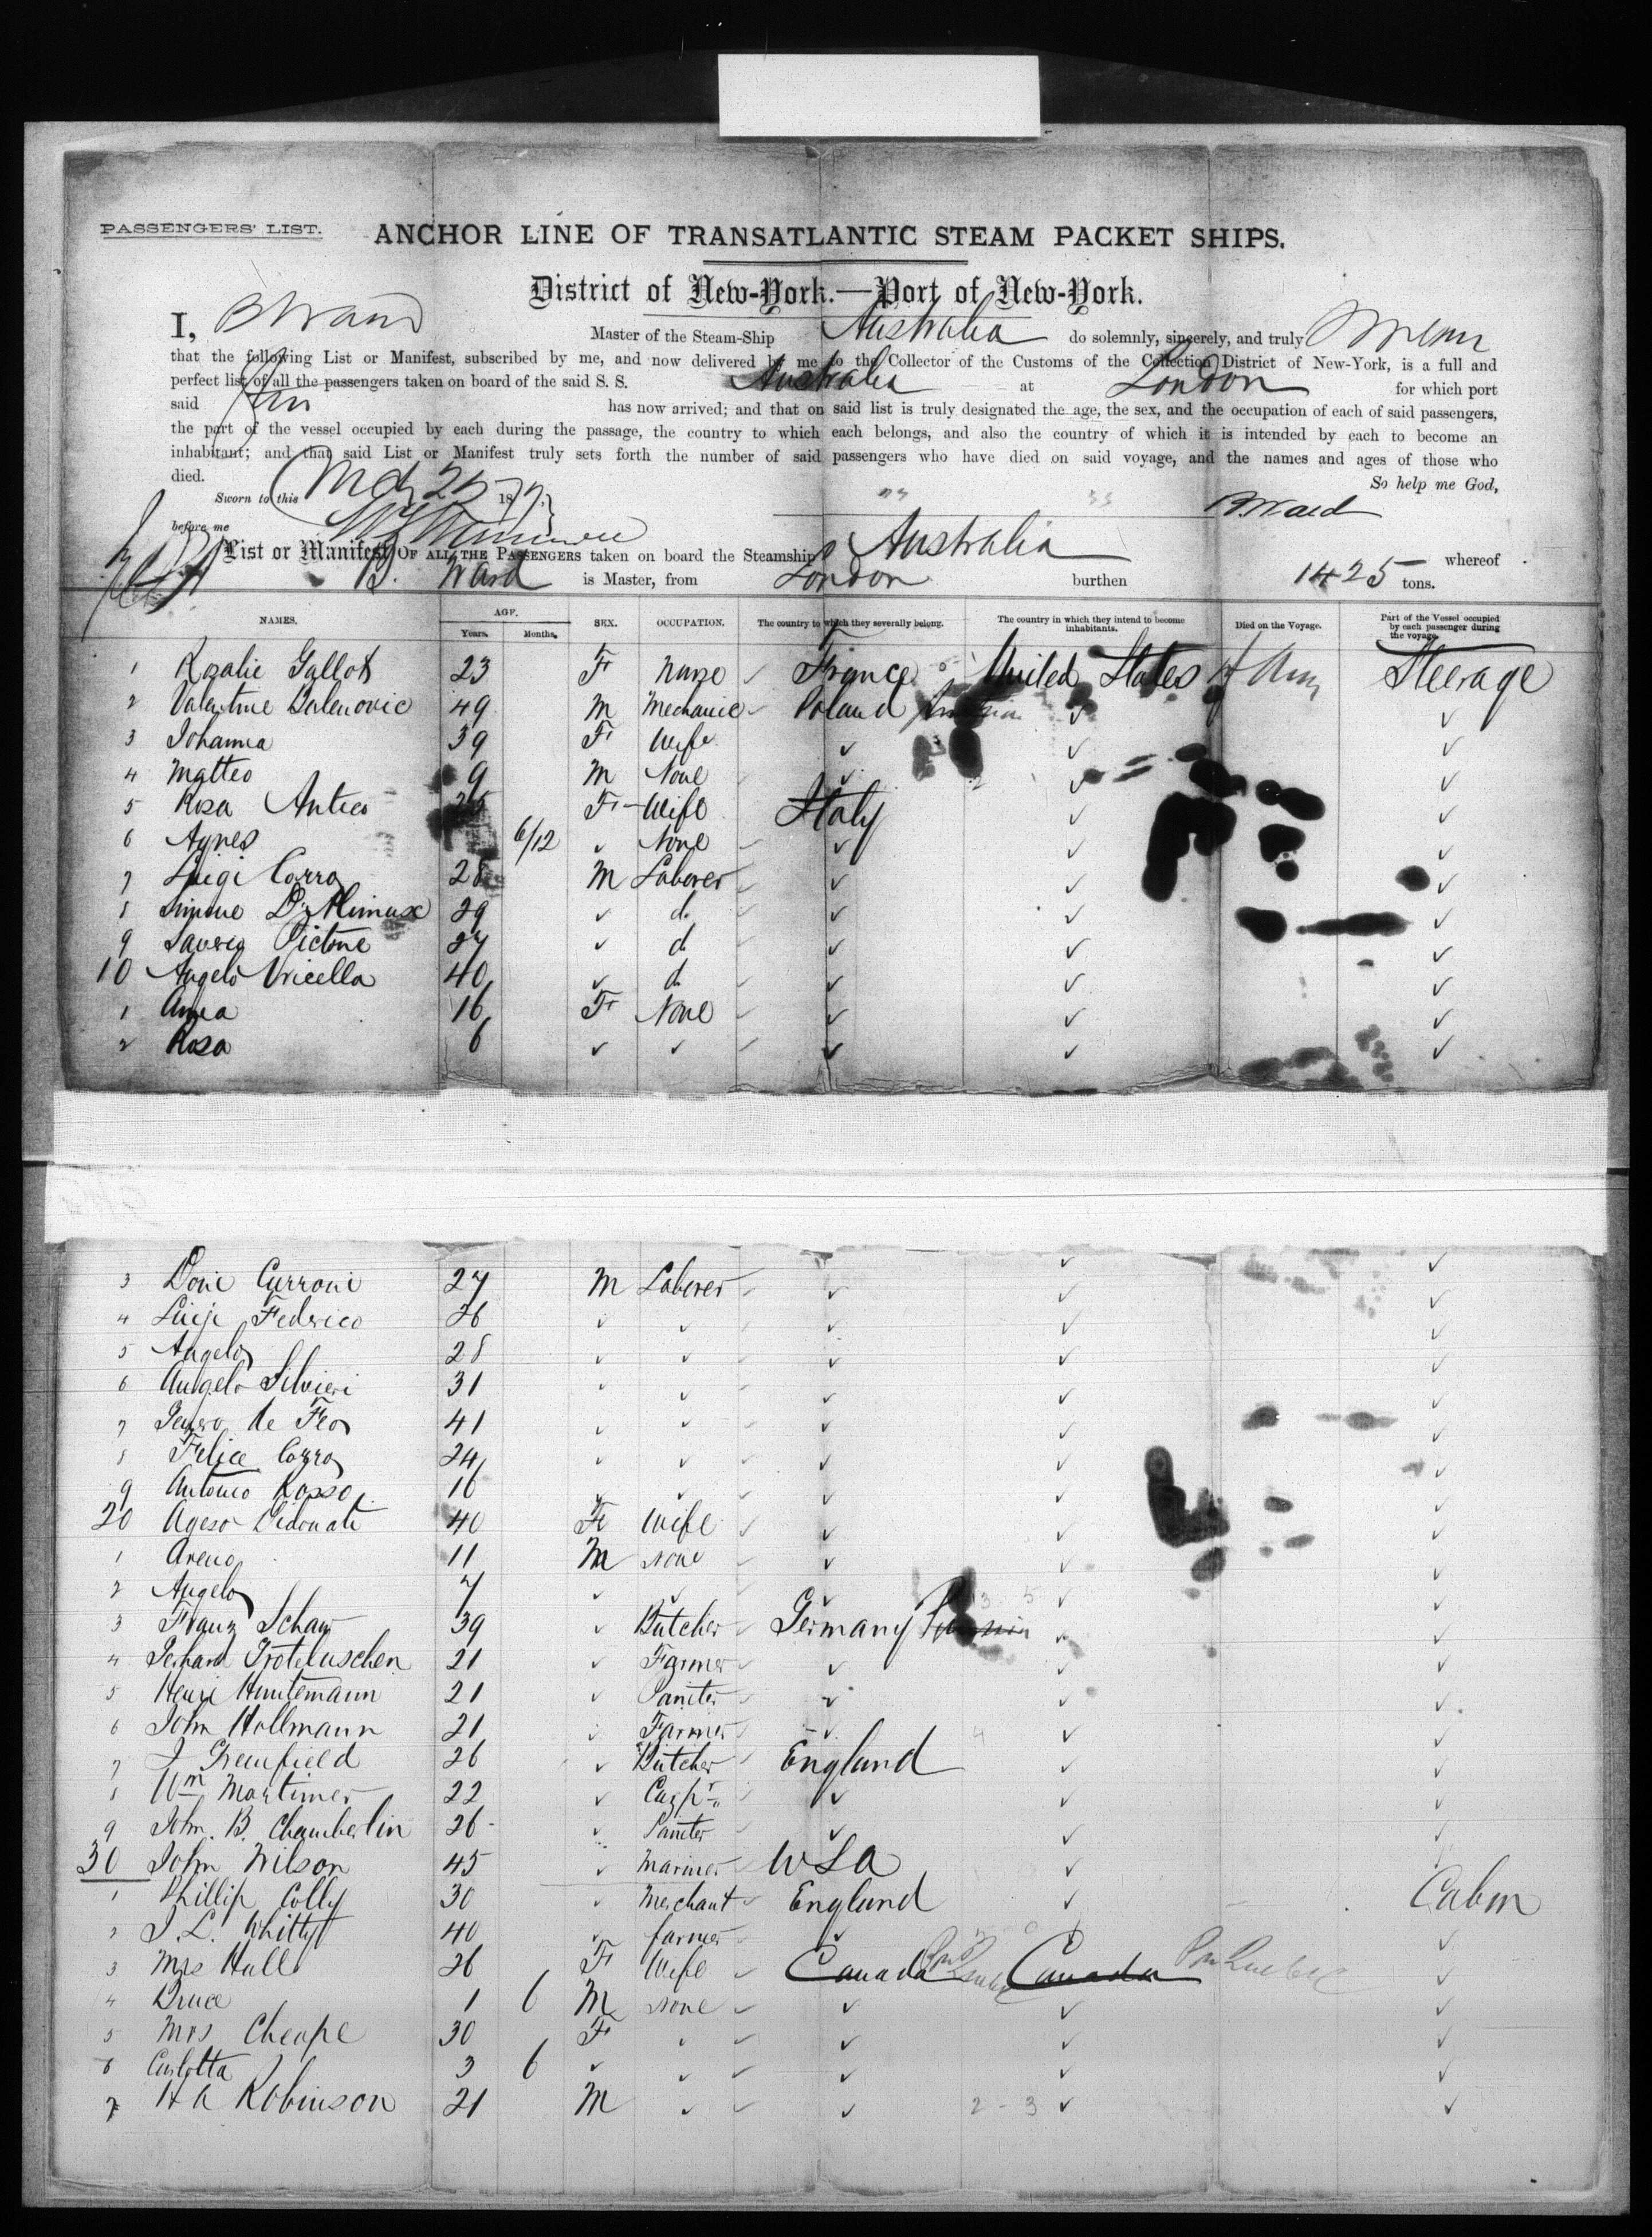 PASSENGERS' LIST.
ANCHOR LINE OF TRANSATLANTIC STEAM PACKET SHIPS.
District of New-York.—Port of New-York.
I, B Ward Master of the Steam-Ship Australia do solemnly, sincerely, and truly Swear
that the following List or Manifest, subscribed by me, and now delivered by me to the Collector of the Customs of the Collection District of New-York, is a full and
perfect list of all the passengers taken on board of the said S. S. Australia at London for which port
said has now arrived; and that on said list is truly designated the age, the sex, and the occupation of each of said passengers,
the part of the vessel occupied by each during the passage, the country to which each belongs, and also the country of which it is intended by each to become an
inhabitant; and that said List or Manifest truly sets forth the number of said passengers who have died on said voyage, and the names and ages of those who
died. So help me God,
Sworn to this 25 187
before me B. Ward
List or Manifest OF ALL THE PASSENGERS taken on board the Steamship Australia whereof
B. Ward is Master, from London burthen 1425 tons.
NAMES. AGE. Years. Months. SEX. OCCUPATION. The country to which they severally belong. The country in which they intend to become inhabitants. Died on the Voyage. Part of the Vessel occupied by each passenger during the voyage.
1 Rozalie Gallot 23 F Nurse ✓ France United States Steerage
2 Valentine Balenovic 49 M Mechanic ✓ Poland ✓ ✓
3 Johanna 39 F Wife ✓ ✓ ✓
4 Matteo 9 M None ✓ ✓ ✓
5 Rosa Antico 25 F Wife Italy ✓ ✓
6 Agnes 6/12 ✓ None ✓ ✓ ✓ ✓
7 Luigi Cozza 28 M Laborer ✓ ✓ ✓ ✓
8 Simone 29 ✓ d. ✓ ✓ ✓ ✓
9 Saverio Pictone 27 ✓ d ✓ ✓ ✓ ✓
10 Angelo Vricella 40 ✓ d. ✓ ✓ ✓ ✓
1 Anna 16 F None ✓ ✓ ✓ ✓
2 Rosa 6 ✓ ✓ ✓ ✓ ✓ ✓
3 Doni Curroni 27 M Laborer ✓ ✓ ✓ ✓
4 Luigi Federico 26 ✓ ✓ ✓ ✓ ✓
5 Angelo 28 ✓ ✓ ✓ ✓ ✓ ✓
6 Angelo Silvieri 31 ✓ ✓ ✓ ✓ ✓ ✓
7 de Feo 41 ✓ ✓ ✓ ✓ ✓ ✓
8 Felice Cozza 24 ✓ ✓ ✓ ✓ ✓ ✓
9 Antonio Rosso 16 ✓ ✓ ✓ ✓ ✓ ✓
20 Didonati 40 F Wife ✓ ✓ ✓ ✓
1 Areno 11 M None ✓ ✓ ✓ ✓
2 Angelo 7 ✓ ✓ ✓ ✓ ✓ ✓
3 Franz Schaw 39 ✓ Butcher ✓ Germany ✓ ✓
4 Gerhard Grotelueschen 21 ✓ Farmer ✓ ✓ ✓ ✓
5 Henri Huntemann 21 ✓ Painter ✓ ✓ ✓ ✓
6 John Hollmann 21 ✓ Farmer ✓ ✓ ✓ ✓
7 J Greenfield 26 ✓ Butcher England ✓ ✓
8 Wm Mortimer 22 ✓ Carpr ✓ ✓ ✓ ✓
9 John. B. Chamberlin 26 ✓ Painter ✓ ✓ ✓
30 John Wilson 45 ✓ Mariner USA ✓
1 Phillip Colly 30 ✓ Merchant ✓ England ✓ Cabin
2 J. L. Whitty 40 ✓ farmer ✓ ✓ ✓
3 Mrs Hall 26 F Wife ✓ Canada Canada ✓
4 Bruce 1 6 M None ✓ ✓ ✓ ✓
5 Mrs Cheape 30 F ✓ ✓ ✓ ✓ ✓
6 Carlotta 3 6 ✓ ✓ ✓ ✓ ✓ ✓
7 H A Robinson 21 M ✓ ✓ ✓ 2 - 3 ✓ ✓